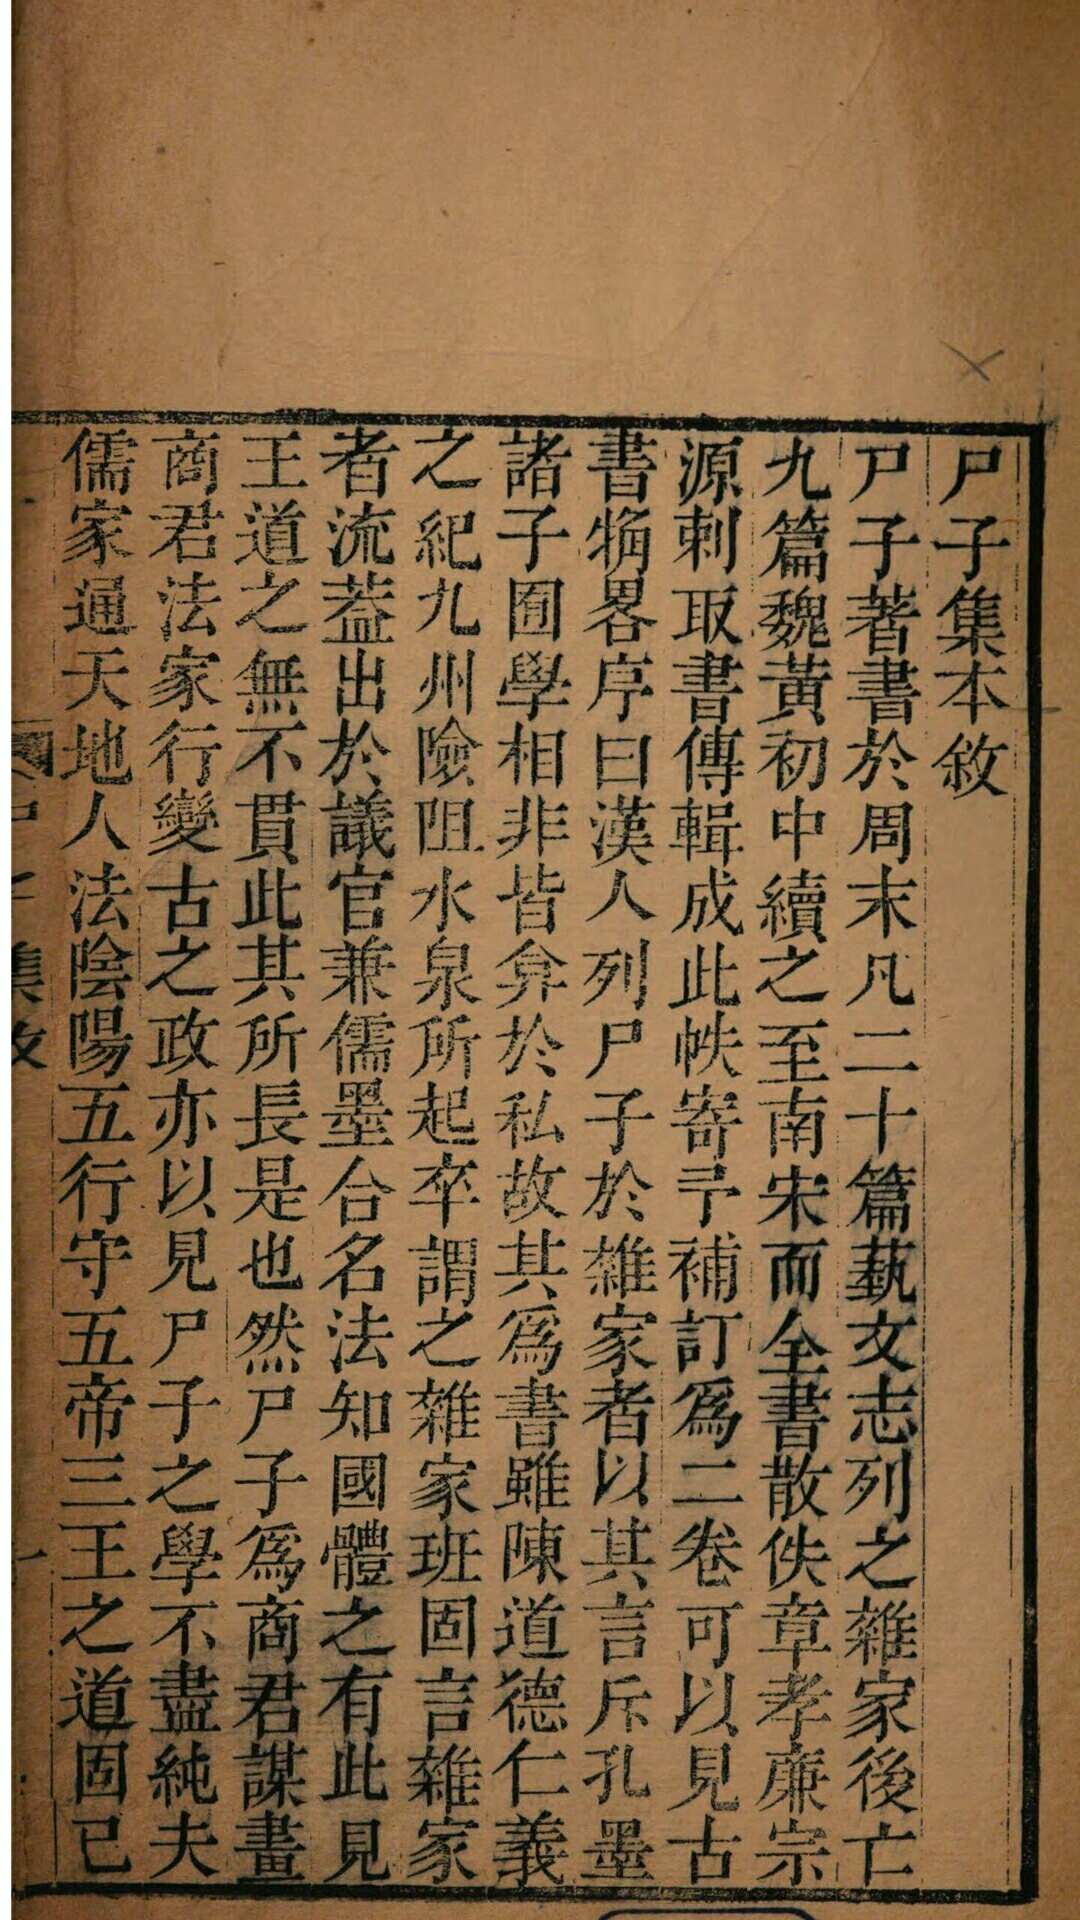 尸子集本敘
尸子著書於周末凡二十篇藝文志列之雜家後亡
九篇魏黃初中續之至南宋而全書散佚章孝廉宗
源刺取書傳輯成此帙寄予補訂爲二卷可以見古
書㮣畧序曰漢人列尸子於雜家者以其言斥孔墨
諸子囿學相非皆弇於私故其爲書雖陳道德仁義
之紀九州險阻水泉所起卒謂之雜家班固言雜家
者流葢出於議官兼儒墨合名法知國體之有此見
王道之無不貫此其所長是也然尸子爲商君謀畫
商君法家行變古之政亦以見尸子之學不盡純夫
儒家通天地人法陰陽五行守五帝三王之道固已
尸子 集敘
一